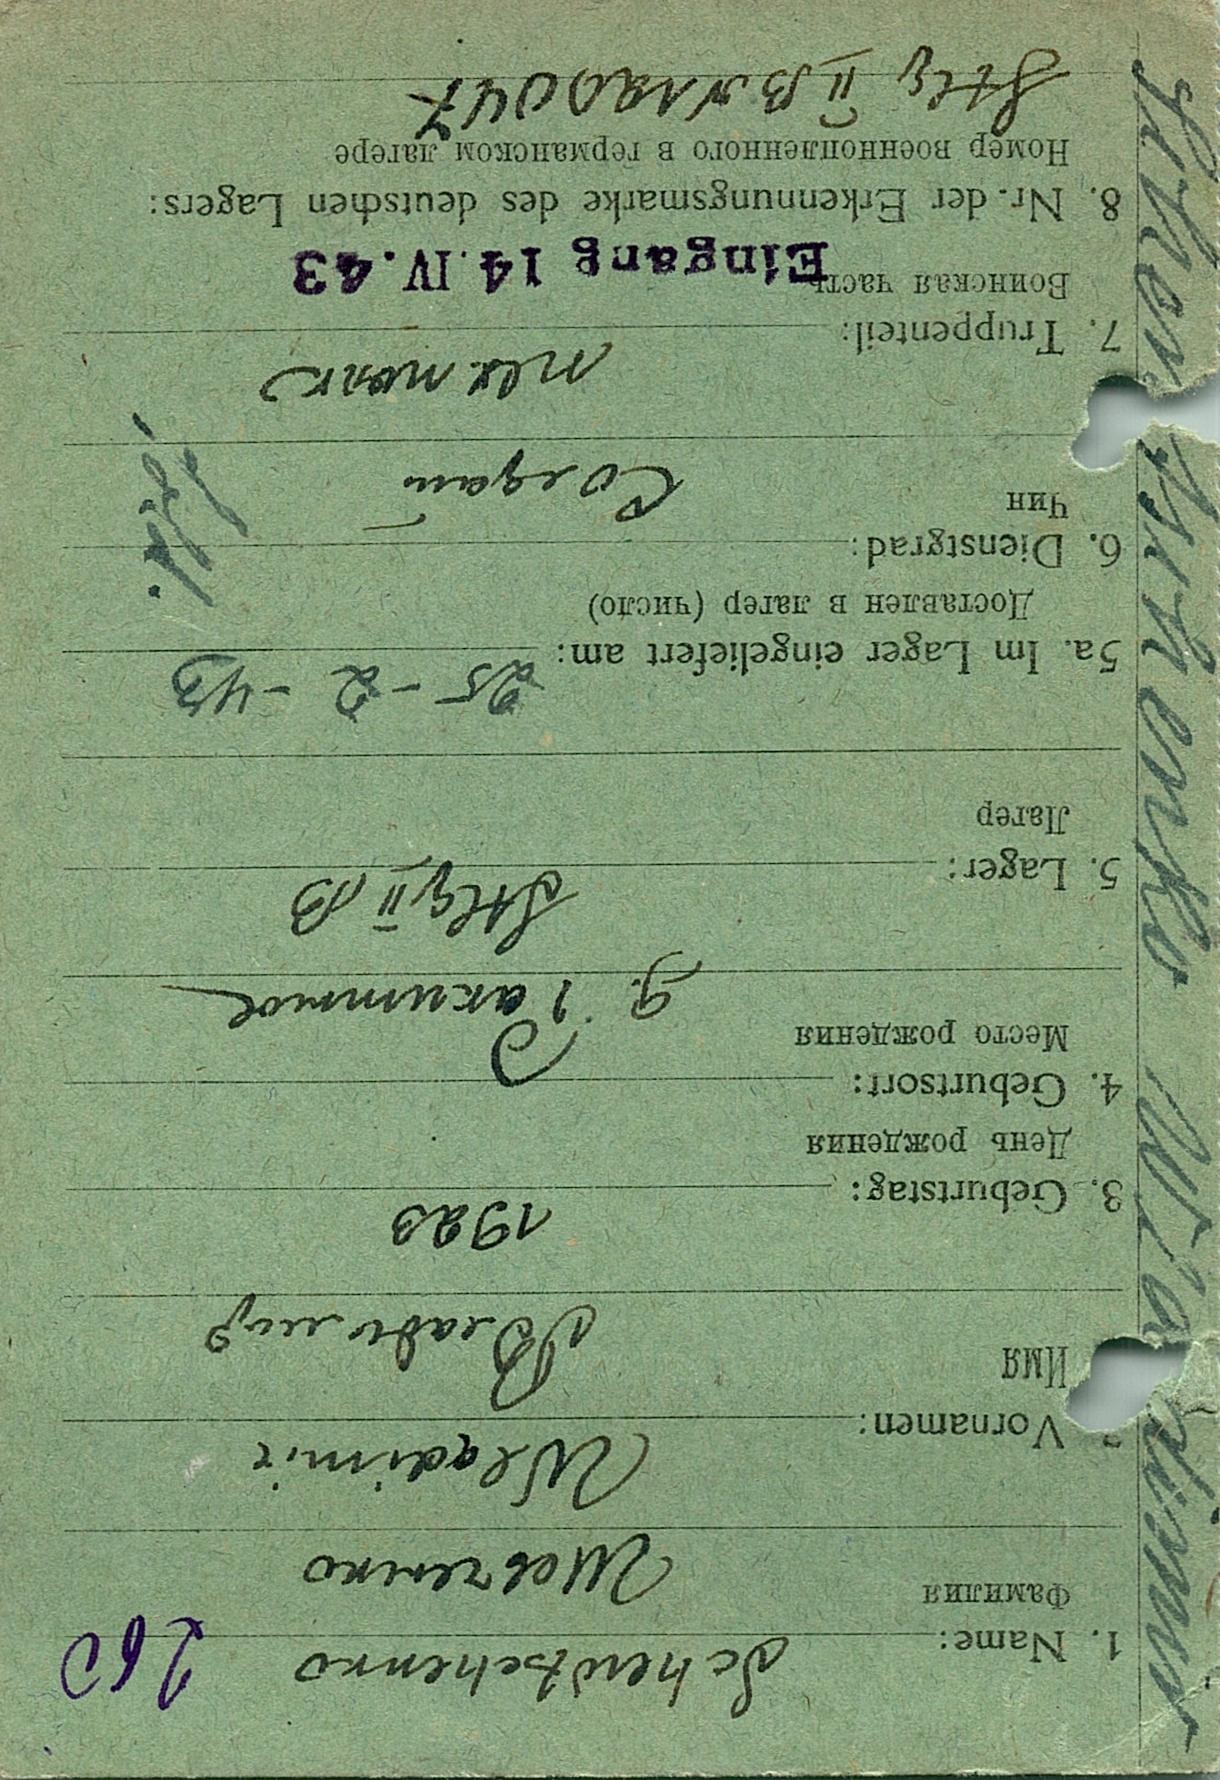 260
1. Name: Schewtschenko
Фамилия
Шевченко
2. Vornamen: Wladimir
Имя
Владимир
3. Geburtstag:
День рождения
1923
4. Geburtsort:
Место рождения
5. Lager: Stlg II B
Лагерь
5a. Im Lager eingeliefert am: 25-2-43
Доставлен в лагерь (число)
6. Dienstgrad:
Чин
Солдат
Sold.
7. Truppenteil:
Воинская часть
Eingang 14.IV.43
8. Nr. der Erkennungsmarke des deutschen Lagers:
Номер военнопленного в германском лагере
Stlg II B N 120047